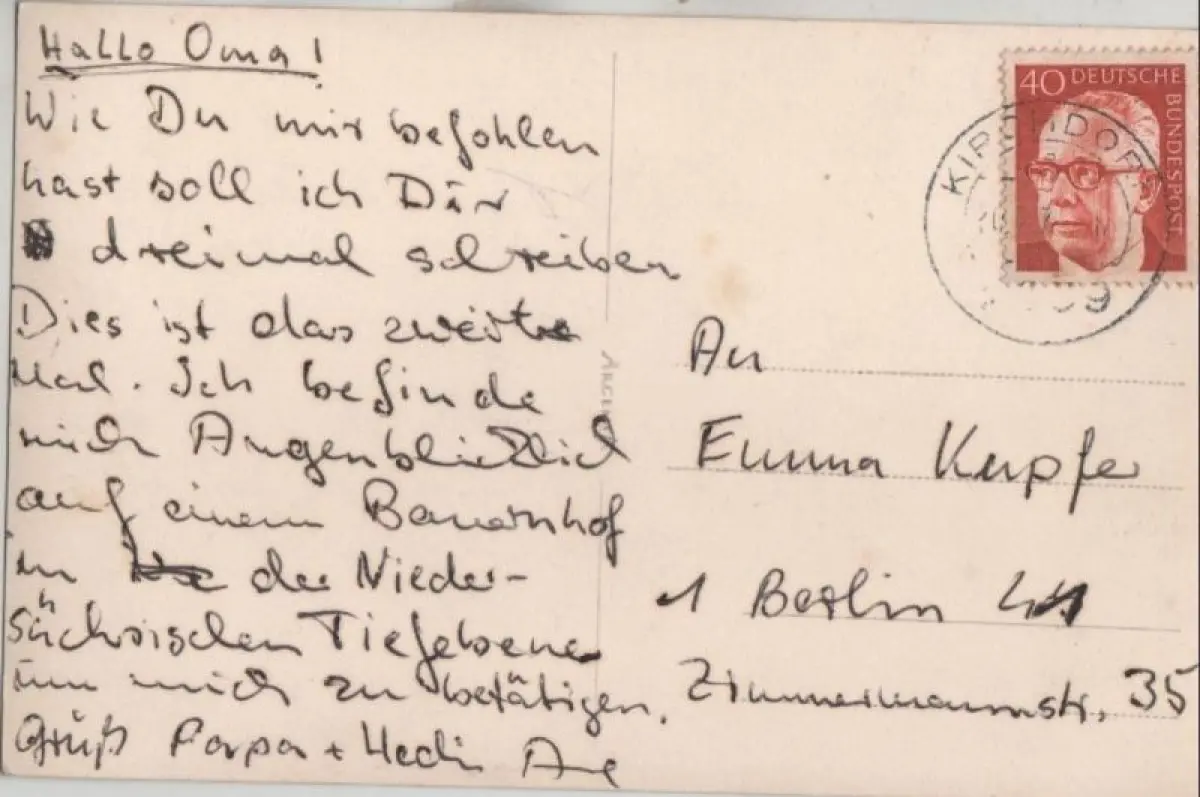 Hallo Oma!
Wie Du mir befohlen
hast soll ich Dir
dreimal schreiben
Dies ist das zweite
Mal. Ich befinde
mich Augenblicklich
auf einem Bauernhof
in der Nieder-
sächsischen Tiefebene
um mich zu betätigen.
Grüß Papa + Hedi
40 DEUTSCHE
BUNDESPOST
An
Emma Kupfer
1 Berlin
Zimmermannstr. 35